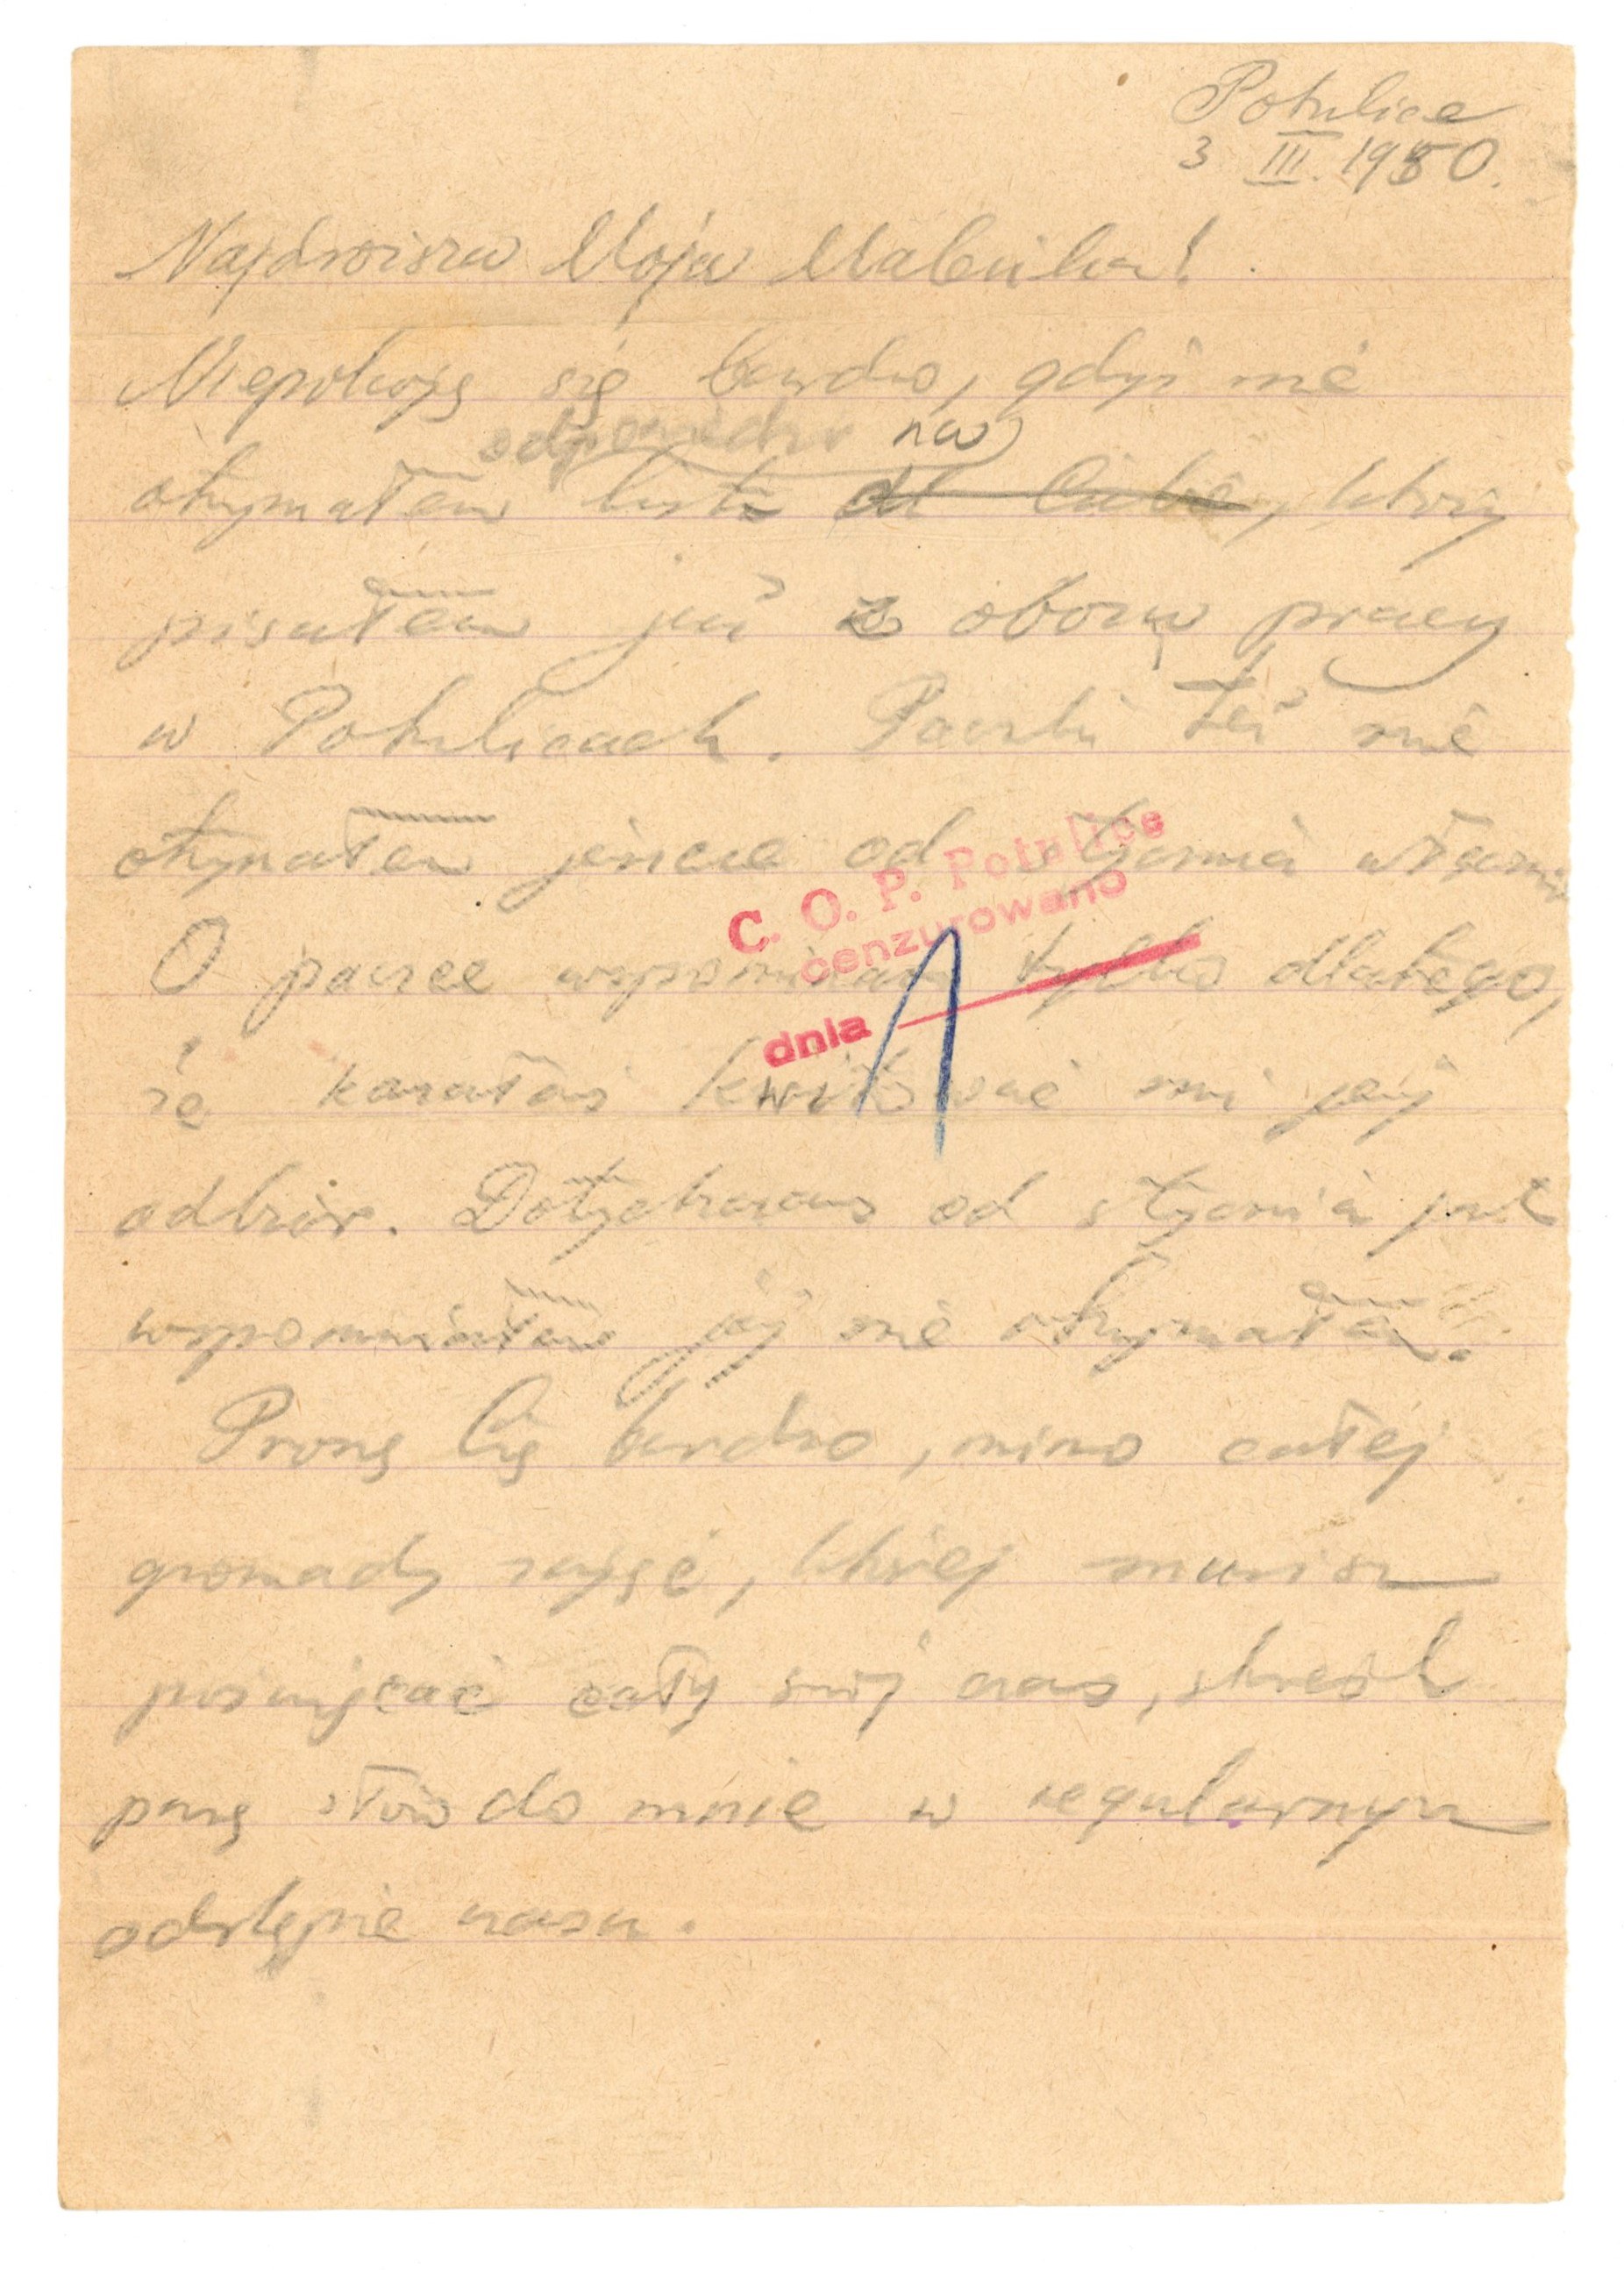 Potulice
3 III. 1950.
Najdroższa Moja Maleńka!
Niepokoję się bardzo, gdyż nie
odpowiedzi na
otrzymałem list od Ciebie, który
pisałem już z obozu pracy
w Potulicach. Paczki też nie
otrzymałem jeszcze od stycznia włącznie
C. O. P. Potulice
cenzurowano
dnia
O paczce wspominam tylko dlatego,
że kazałaś kwitować mi jej
odbiór. Dotychczas od stycznia jak
wspomniałem jej nie otrzymałem.
Proszę Cię bardzo, mimo całej
gromady zajęć, której musisz
poświęcać cały swój czas, skreśl
parę słów do mnie w regularnym
odstępie czasu.